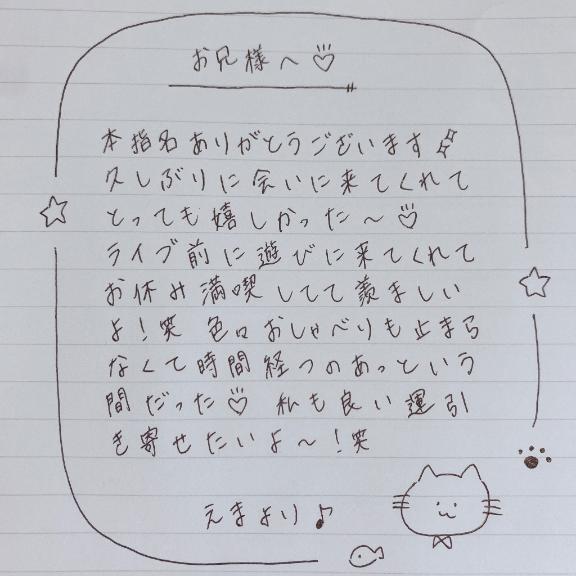 お兄様へ♡
本指名ありがとうございます
久しぶりに会いに来てくれて
とっても嬉しかった〜♡
ライブ前に遊びに来てくれて
お休み満喫してて羨ましい
よ!笑 色々おしゃべりも止まら
なくて時間経つのあっという
間だった♡ 私も良い運引
き寄せたいよ〜!笑
えまより♪